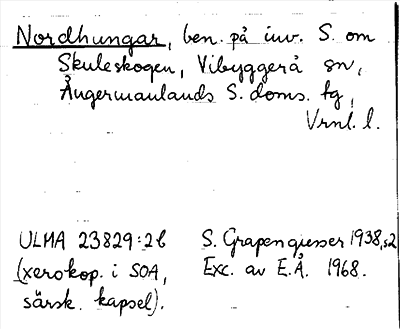 Nordhungar, ben. på inv. S. om
Skuleskogen, Vibyggerå sn,
Ångermanlands S. doms. tg,
Vrnl. l.
ULMA 23829:26 S. Grapengiesser 1938, s2
(xerokop. i SOA, Exc. av E.Å. 1968.
särsk. kapsel).